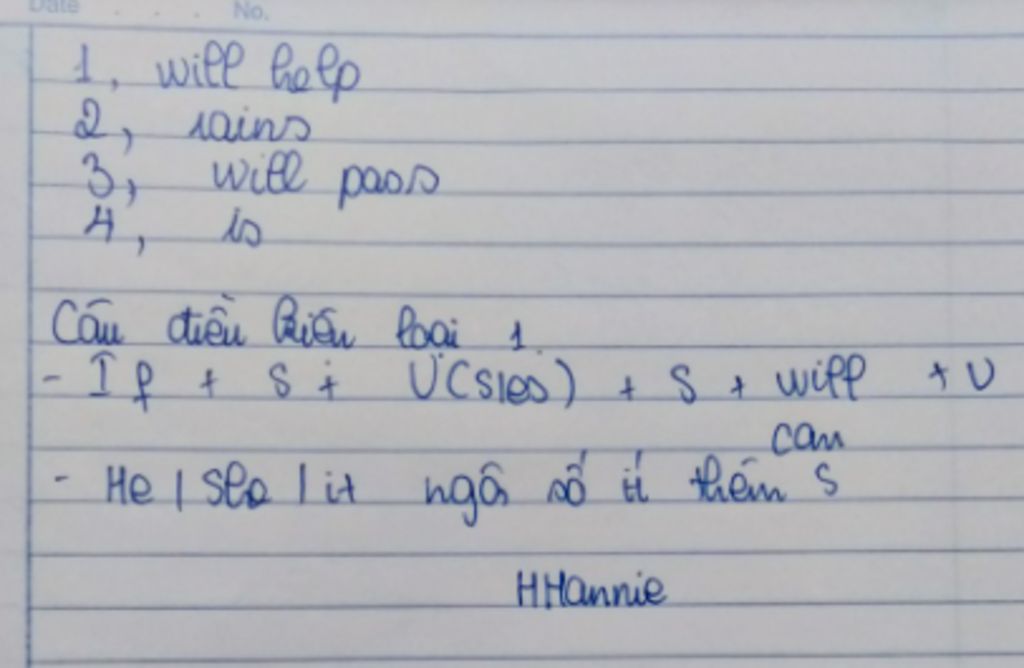 Date . . . No.
1, will help
2, rains
3, will pass
4, is
Câu điều kiện loại 1.
- If + S + V(s/es) + S + will + V
can
- He / she / it ngôi số ít thêm s
HHannie